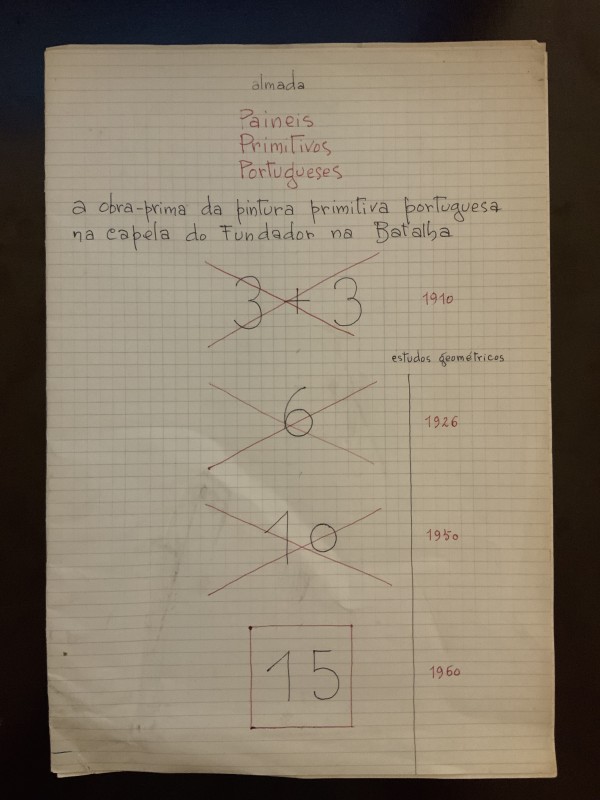 almada
Paineis
Primitivos
Portugueses
a obra-prima da pintura primitiva portuguesa
na capela do Fundador na Batalha
3 + 3 1910
estudos geométricos
6 1926
10 1950
15 1960